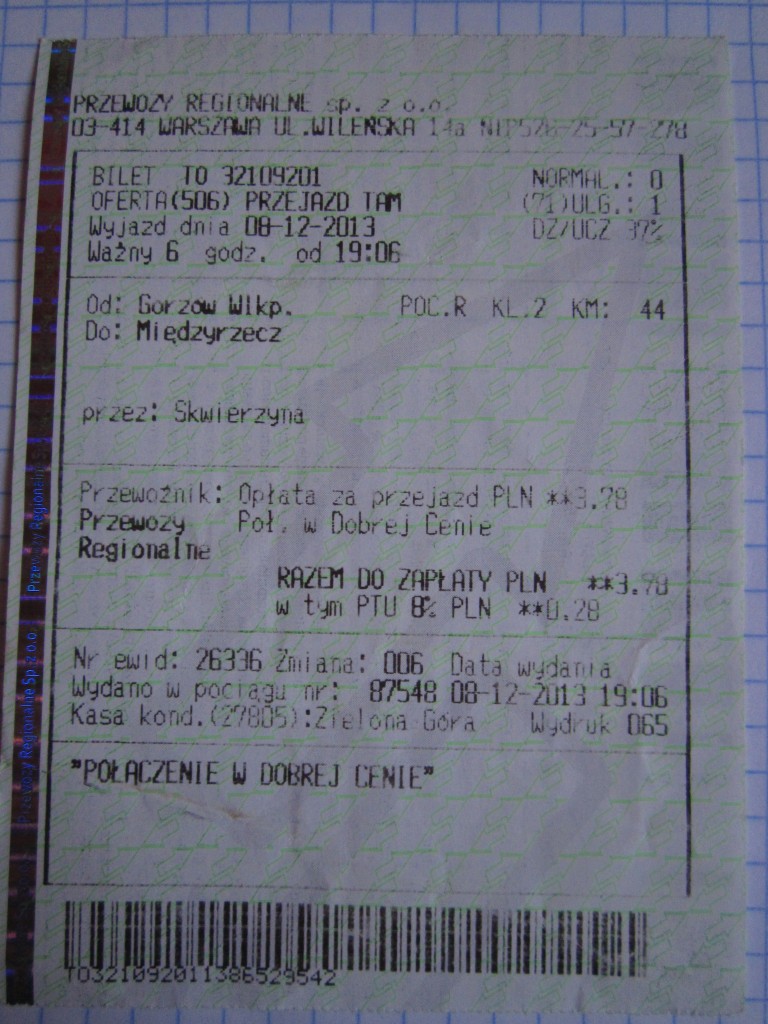 PRZEWOZY REGIONALNE sp. z o.o.
03-414 WARSZAWA UL.WILEŃSKA 14a NIP526-25-57-278
BILET TO 32109201 NORMAL.: 0
OFERTA(506) PRZEJAZD TAM (71)ULG.: 1
Wyjazd dnia 08-12-2013 DZ/UCZ 37%
Ważny 6 godz. od 19:06
Od: Gorzów Wlkp. POC.R KL.2 KM: 44
Do: Międzyrzecz
przez: Skwierzyna
Przewoźnik: Opłata za przejazd PLN **3.78
Przewozy Poł. w Dobrej Cenie
Regionalne
RAZEM DO ZAPŁATY PLN **3.78
w tym PTU 8% PLN **0.28
Nr ewid: 26336 Zmiana: 006 Data wydania
Wydano w pociągu nr: 87548 08-12-2013 19:06
Kasa kond.(27805):Zielona Góra Wydruk 065
"POŁĄCZENIE W DOBREJ CENIE"
TO321092011386529542
Przewozy Regionalne Sp. z o.o. Przewozy Regionalne S